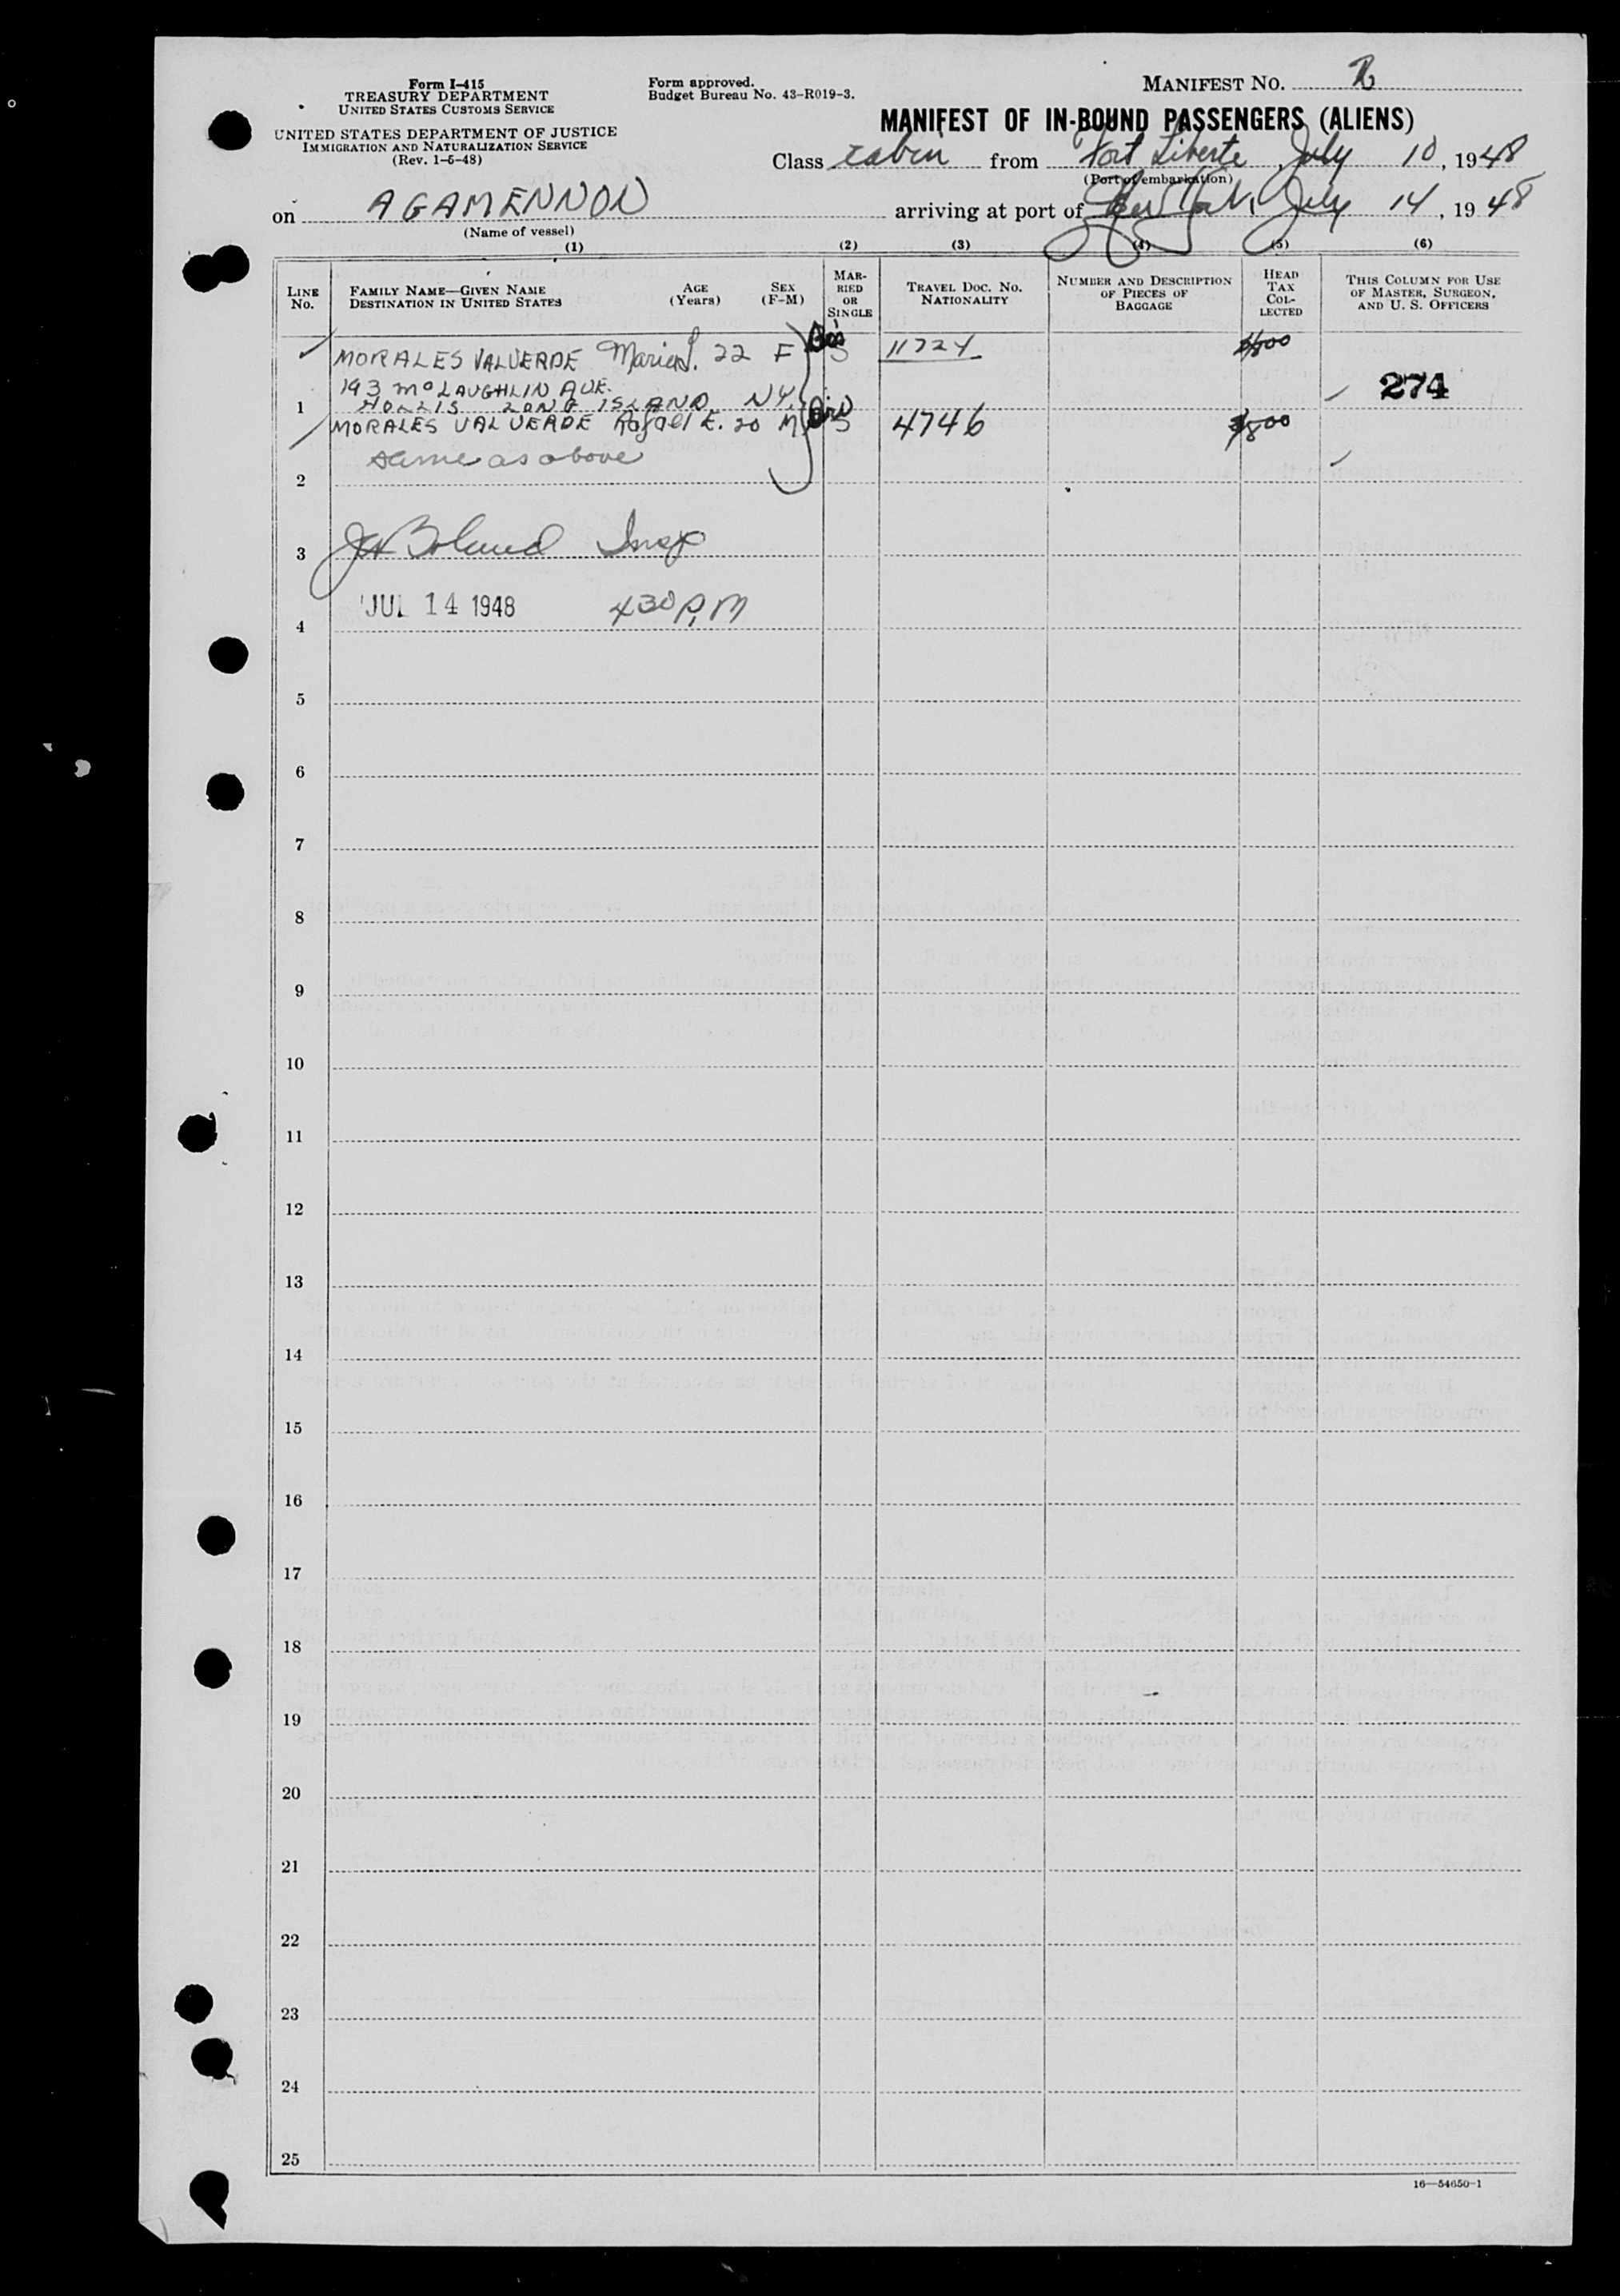 Form I-415
TREASURY DEPARTMENT
UNITED STATES CUSTOMS SERVICE
UNITED STATES DEPARTMENT OF JUSTICE
IMMIGRATION AND NATURALIZATION SERVICE
(Rev. 1-5-48)
Form approved.
Budget Bureau No. 43-R019-3.
MANIFEST NO.
MANIFEST OF IN-BOUND PASSENGERS (ALIENS)
Class cabin from Fort Liberte, July 10, 1948
(Port of embarkation)
on AGAMENNON arriving at port of New York, July 14, 1948
(Name of vessel)
(1) (2) (3) (4) (5) (6)
LINE NO.
FAMILY NAME—GIVEN NAME
DESTINATION IN UNITED STATES
AGE
(Years)
SEX
(F-M)
MAR-
RIED
OR
SINGLE
TRAVEL DOC. NO.
NATIONALITY
NUMBER AND DESCRIPTION
OF PIECES OF
BAGGAGE
HEAD
TAX
COL-
LECTED
THIS COLUMN FOR USE
OF MASTER, SURGEON,
AND U. S. OFFICERS
MORALES VALVERDE 22 F S 11724 800
193 McLAUGHLIN AVE.
1 HOLLIS LONG ISLAND NY. 274
MORALES VALVERDE Rafael E. 20 M S 4746 800
same as above
2
3 Boland Insp
JUL 14 1948 430 P.M
4
5
6
7
8
9
10
11
12
13
14
15
16
17
18
19
20
21
22
23
24
25
16—54650-1